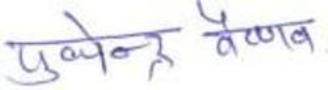 पुष्पेन्द्र वैष्णव